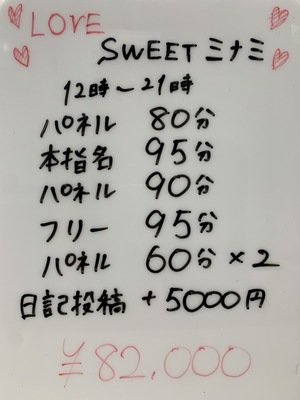 LOVE
SWEET ミナミ
12時~21時
パネル 80分
本指名 95分
パネル 90分
フリー 95分
パネル 60分×2
日記投稿 +5000円
¥82.000